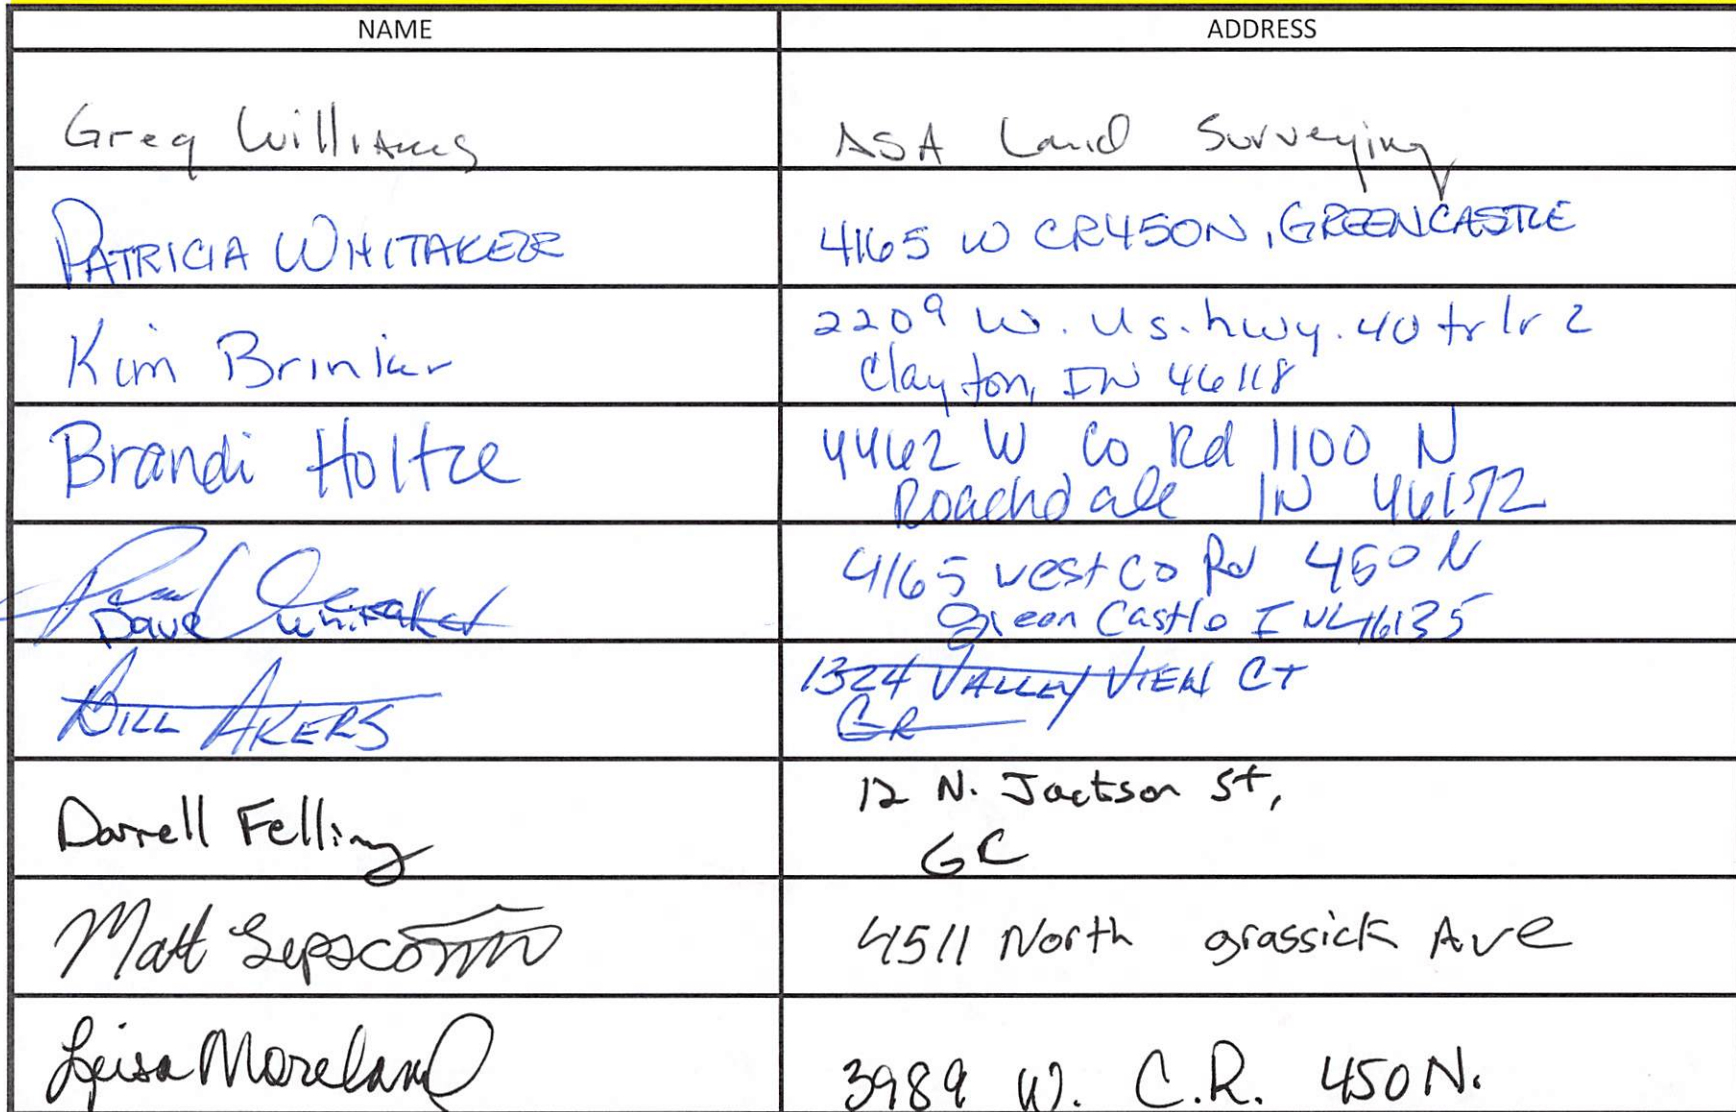 NAME ADDRESS
Greg Williams ASA Land Surveying
PATRICIA WHITAKER 4165 W CR450N, GREENCASTLE
Kim Brinker 2209 W. Us. hwy. 40 trlr 2
Clayton, IN 46118
Brandi Holtze 4462 W Co Rd 1100 N
Roachdale IN 46172
4165 west Co Rd 450 N
Dave Whitaker green Castle IN 46135
BILL AKERS 1324 VALLEY VIEW CT
GR
Darrell Felling 12 N. Jackson St,
GC
Matt Lipscomb 4511 North grassick Ave
Leisa Moreland 3989 W. C.R. 450N.